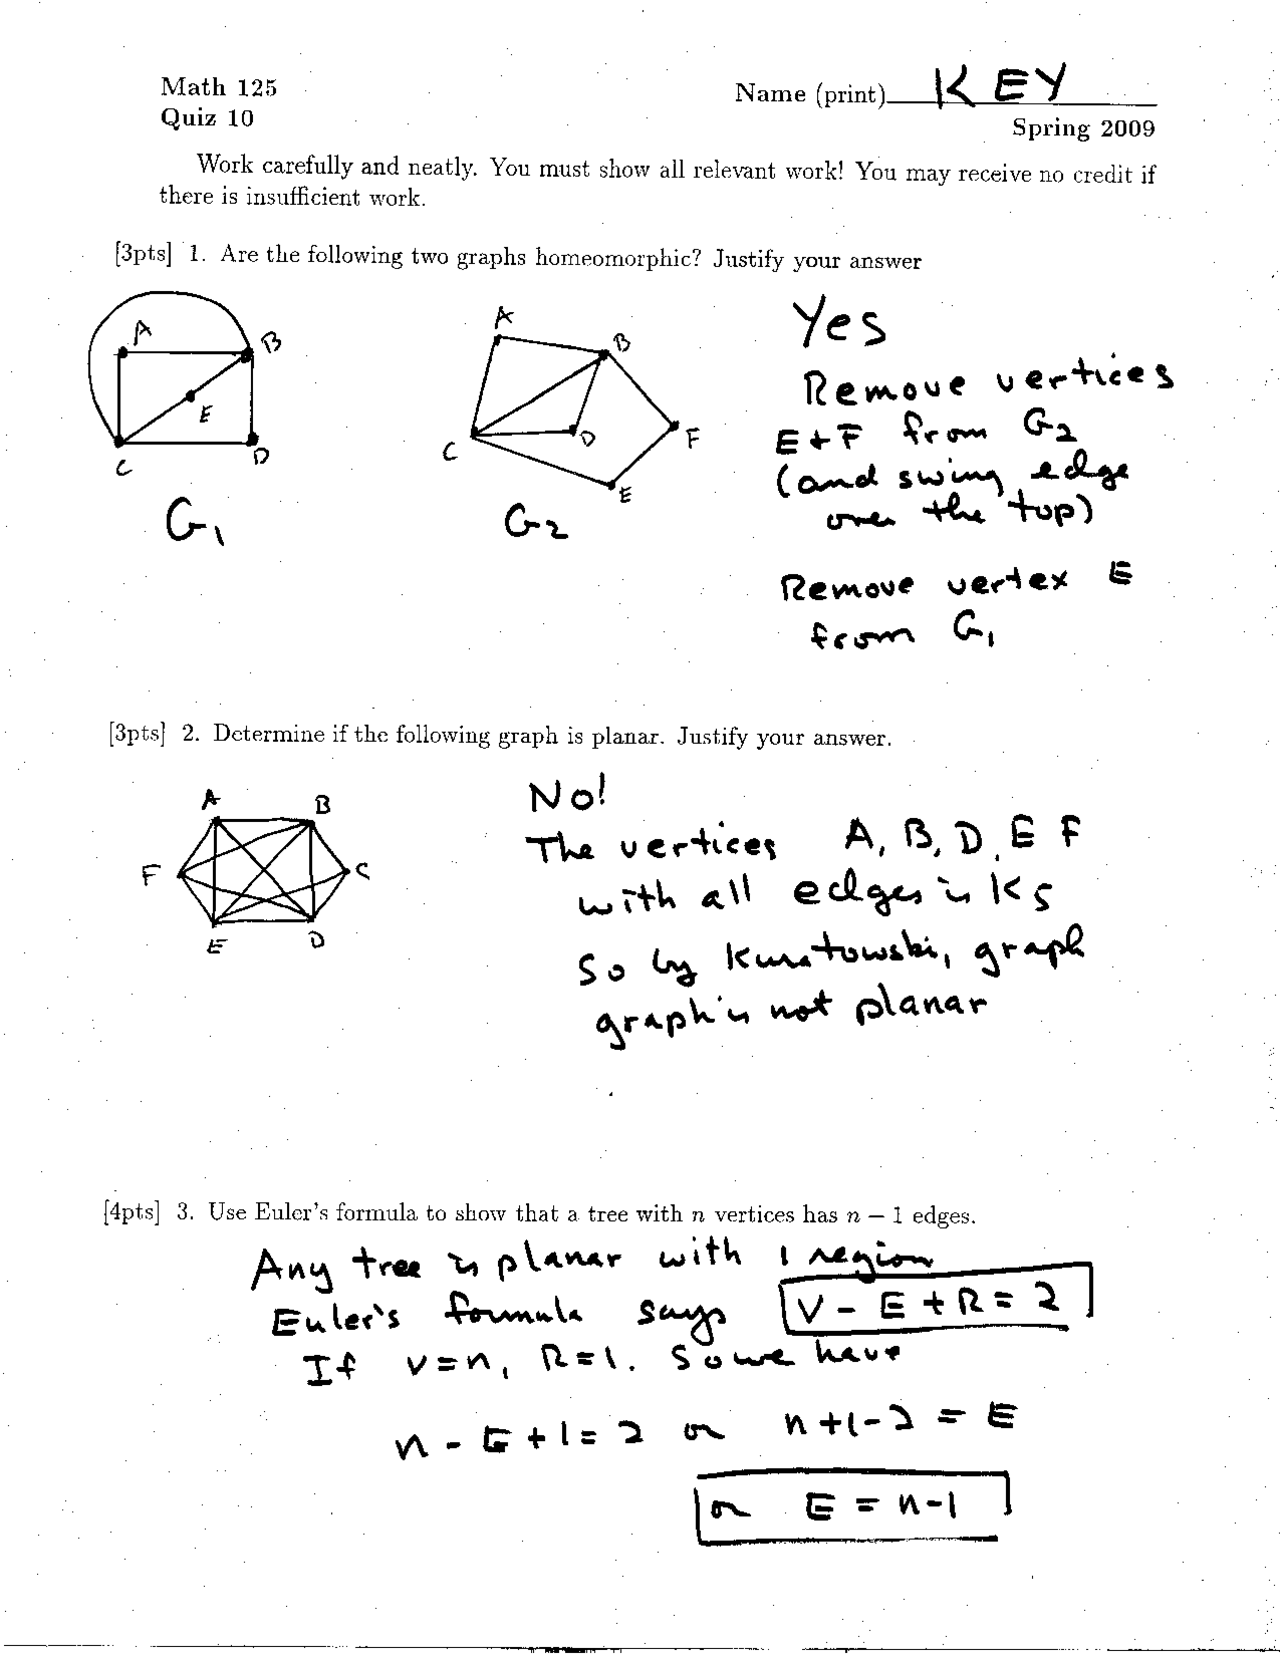 Math 125
Name (print) KEY
Quiz 10
Spring 2009
Work carefully and neatly. You must show all relevant work! You may receive no credit if
there is insufficient work.
[3pts] 1. Are the following two graphs homeomorphic? Justify your answer
A
B
E
C
D
G1
A
B
C
D
F
E
G2
Yes
Remove vertices
E + F from G2
(and swing edge
over the top)
Remove vertex E
from G1
[3pts] 2. Determine if the following graph is planar. Justify your answer.
A
B
F
C
E
D
No!
The vertices A, B, D, E F
with all edges is K5
So by Kuratowski, graph
graph is not planar
[4pts] 3. Use Euler's formula to show that a tree with n vertices has n − 1 edges.
Any tree is planar with 1 region
Euler's formula says V - E + R = 2
If v=n, R=1. So we have
n - E + 1 = 2 or n+1-2 = E
or E = n-1